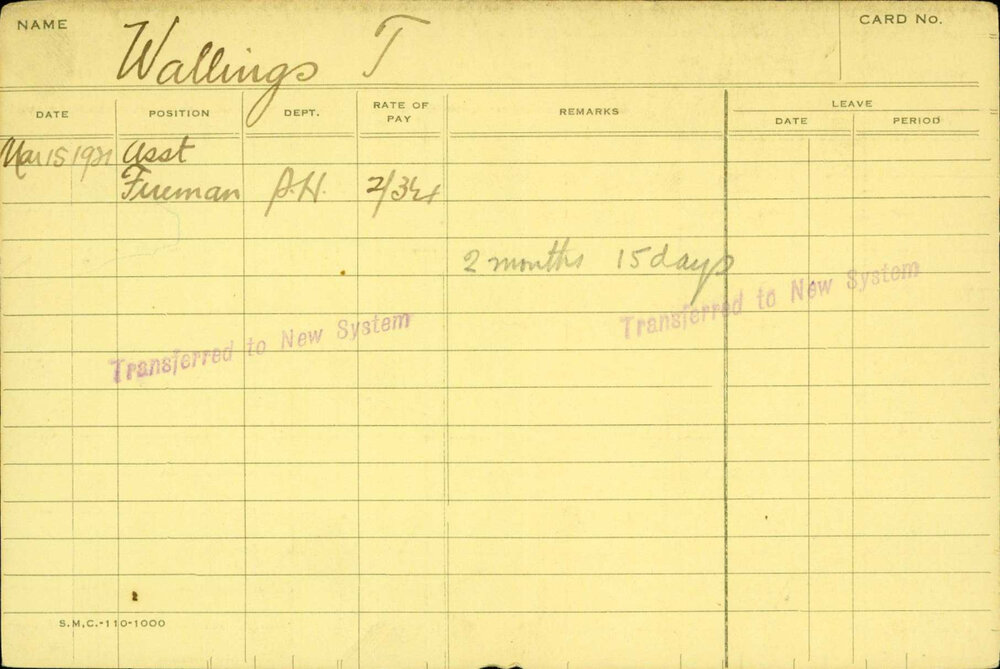 NAME Wallings T CARD No.
DATE POSITION DEPT. RATE OF PAY REMARKS LEAVE
DATE PERIOD
Mar 15 1921 Asst
Fireman P.H. 2/3¼
2 months 15 days
Transferred to New System
Transferred to New System
S.M.C.-110-1000